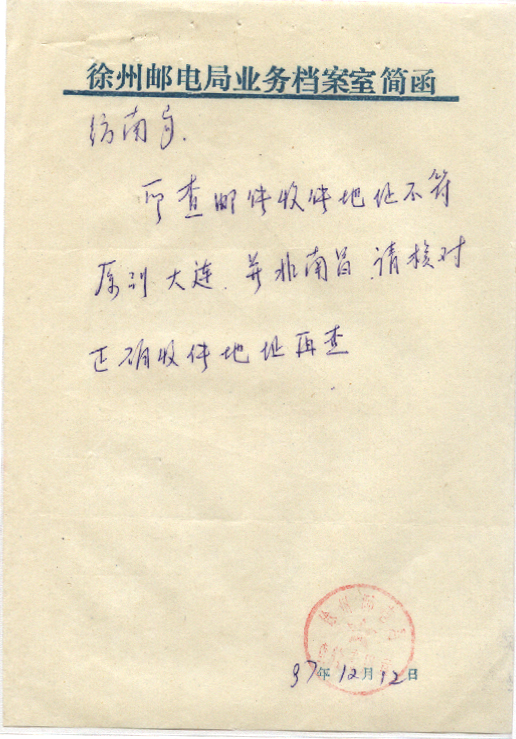 徐州邮电局业务档案室简函
南京.
所查邮件收件地址不符
原列大连.并非南昌,请核对
正确收件地址再查
徐州邮电局
97年12月12日